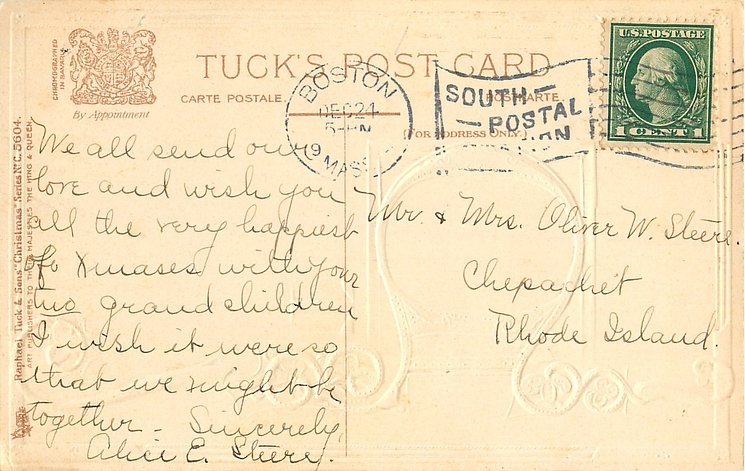 CHROMOGRAPHED
IN BAVARIA
By Appointment
TUCK'S POST CARD
CARTE POSTALE
POSTKARTE
(FOR ADDRESS ONLY.)
BOSTON
DEC 24
MASS
SOUTH
POSTAL
U.S. POSTAGE
1 CENT 1
Raphael Tuck & Sons' "Christmas" Series No. C. 5604.
ART PUBLISHERS TO THEIR MAJESTIES THE KING & QUEEN.
We all send our
love and wish you
all the very happiest
of Xmases with your
two grand children
I wish it were so
that we might be
together - Sincerely,
Alice E. Steere.
Mr. & Mrs. Oliver W. Steere.
Chepachet
Rhode Island.